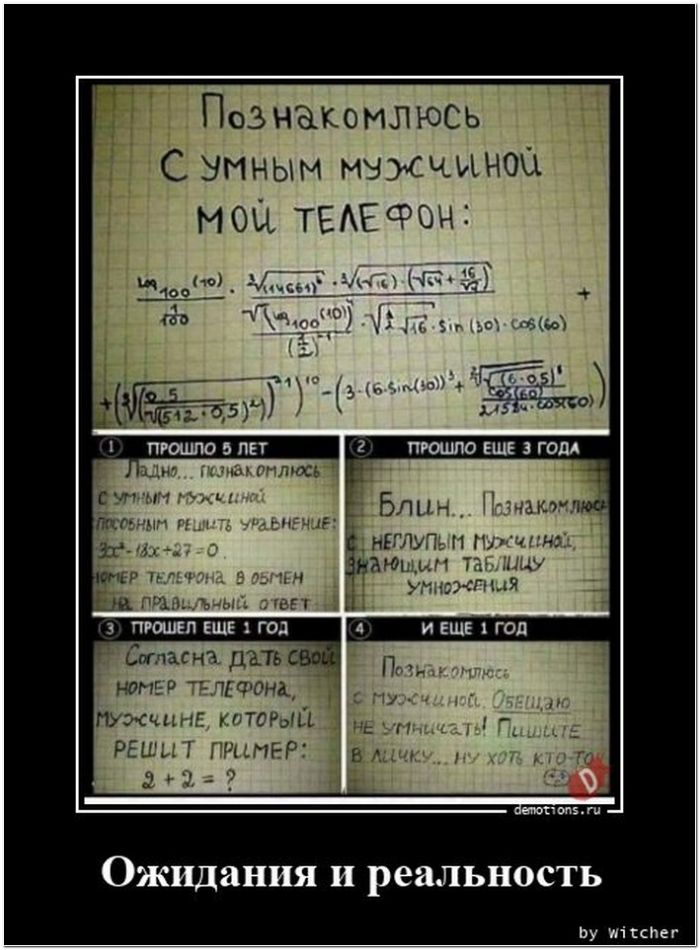 Познакомлюсь
с умным мужчиной
мой телефон:
log₁₀₀(10)
1/100
+
sin(30)·cos(60)
① ПРОШЛО 5 ЛЕТ
Ладно... познакомлюсь
с умным мужчиной
способным решить уравнение:
3x²-18x+27=0.
номер телефона в обмен
на правильный ответ
② ПРОШЛО ЕЩЕ 3 ГОДА
Блин... Познакомлюсь
с неглупым мужчиной,
знающим таблицу
умножения
③ ПРОШЕЛ ЕЩЕ 1 ГОД
Согласна дать свой
номер телефона,
мужчине, который
решит пример:
2 + 2 = ?
④ И ЕЩЕ 1 ГОД
Познакомлюсь
с мужчиной. Обещаю
не умничать! Пишите
в личку... ну хоть кто-то
D
demotions.ru
Ожидания и реальность
by Witcher